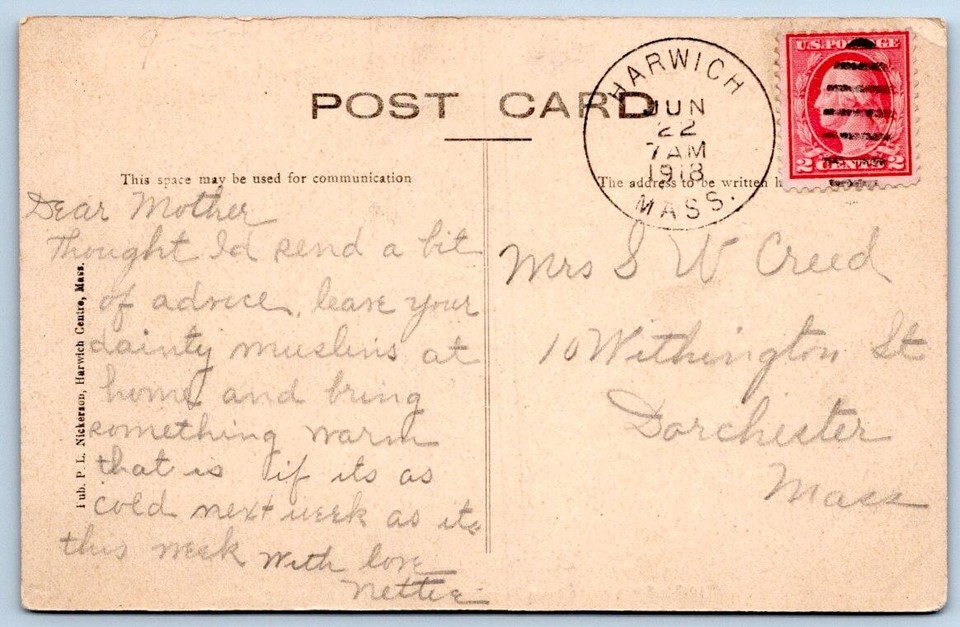 POST CARD
HARWICH
JUN
22
7AM
1918
MASS.
U.S. POSTAGE
2 CENTS 2
This space may be used for communication
The address to be written h
Dear Mother
Thought Id send a bit
of advice, leave your
dainty muslins at
home and bring
something warm
that is if its as
cold next week as its
this week with love
Nettie
Mrs S W Creed
10 Withington St
Dorchester
Mass
Pub. P. L. Nickerson, Harwich Centre, Mass.